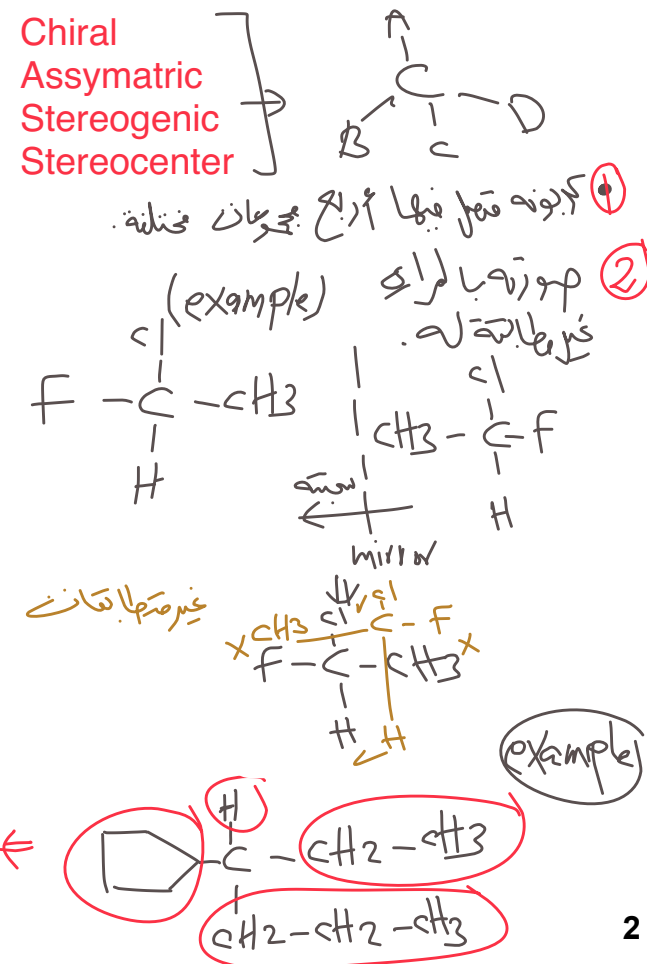 Chiral
Assymatric
Stereogenic
Stereocenter
A
C
B C D
① كربونه متصل فيها أربع مجموعات مختلفة.
② صورته بالمرآة
غير مطابقة له.
(example)
Cl
F - C - CH3
H
Cl
CH3 - C - F
H
mirror
غير متطابقات
Cl Cl
x CH3 C - F x
F - C - CH3
H H
example
H
C - CH2 - CH3
CH2 - CH2 - CH3
2